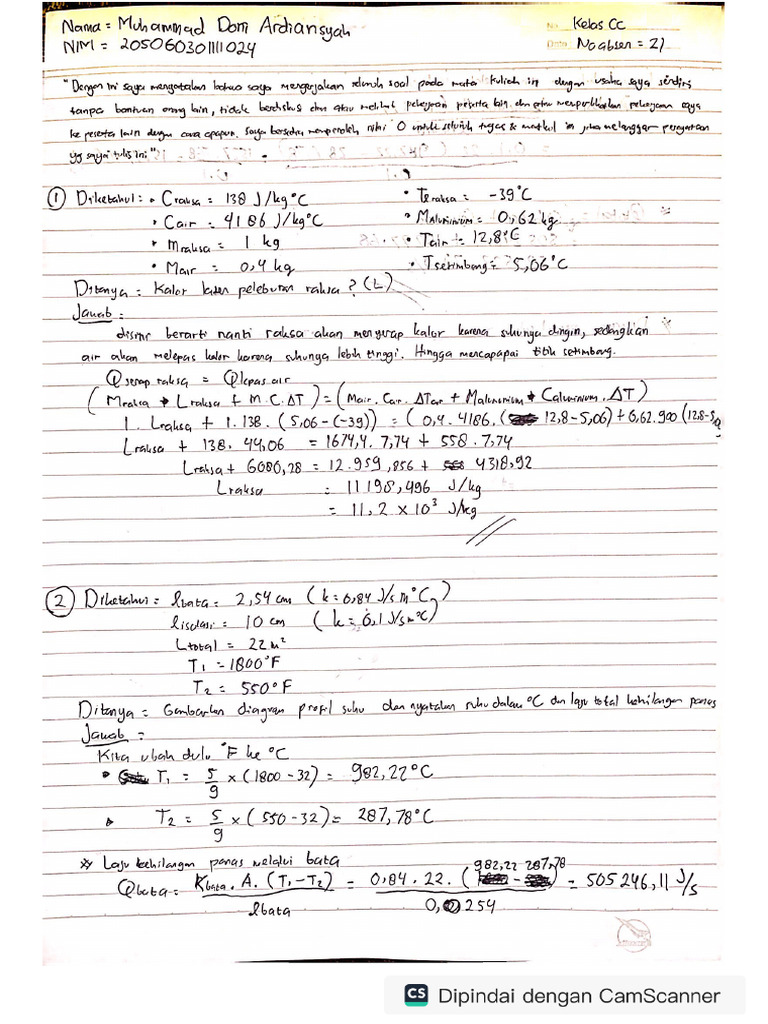 Nama = Muhammad Doni Ardiansyah
NIM = 205060301111024
No Kelas CC
Date No absen = 21
"Dengan ini saya mengatakan bahwa saya mengerjakan seluruh soal pada mata kuliah ini dengan usaha saya sendiri
tanpa bantuan orang lain, tidak berdiskusi dan atau melihat pekerjaan peserta lain dan atau memperlihatkan pekerjaan saya
ke peserta lain dengan cara apapun. Saya bersedia memperoleh nilai 0 untuk seluruh tugas & matkul ini jika melanggar pernyataan
yg saya tulis ini"
① Diketahui : • Craksa = 138 J/kg°C
• Cair = 4186 J/kg°C
• Mraksa = 1 kg
• Mair = 0,4 kg
• Traksa = -39°C
• Maluminium = 0,62 kg
• Tair = 12,8°C
• Tsetimbang = 5,06°C
Ditanya = Kalor laten peleburan raksa ? (L)
Jawab :
disini berarti nanti raksa akan menyerap kalor karena suhunya dingin, sedangkan
air akan melepas kalor karena suhunya lebih tinggi. Hingga mencapapai titik setimbang.
Qserap raksa = Qlepas air
(Mraksa * Lraksa + M.C.ΔT) = (Mair. Cair. ΔTair + Maluminium * Caluminium. ΔT)
1. Lraksa + 1.138. (5,06-(-39)) = (0,4. 4186. (12,8-5,06) + 0,62.900 (12,8-5,0
Lraksa + 138. 44,06 = 1674,4. 7,74 + 558. 7,74
Lraksa + 6080,28 = 12.959,856 + 4318,92
Lraksa = 11198,496 J/kg
= 11,2 × 10³ J/kg
② Diketahui = lbata = 2,54 cm (k = 0,84 J/s m°C)
lisolasi = 10 cm (k = 0,1 J/sm°C)
Ltotal = 22 m²
T1 = 1800°F
T2 = 550°F
Ditanya = Gambarkan diagram profil suhu dan nyatakan suhu dalam °C dan laju total kehilangan panas
Jawab =
Kita ubah dulu °F ke °C
• T1 = 5/9 × (1800-32) = 982,22°C
• T2 = 5/9 × (550-32) = 287,78°C
* Laju kehilangan panas melalui bata
Qbata = Kbata. A. (T1-T2) / lbata = 0,84. 22. (982,22 287,78) / 0,0254 = 505246,11 J/s
CS Dipindai dengan CamScanner